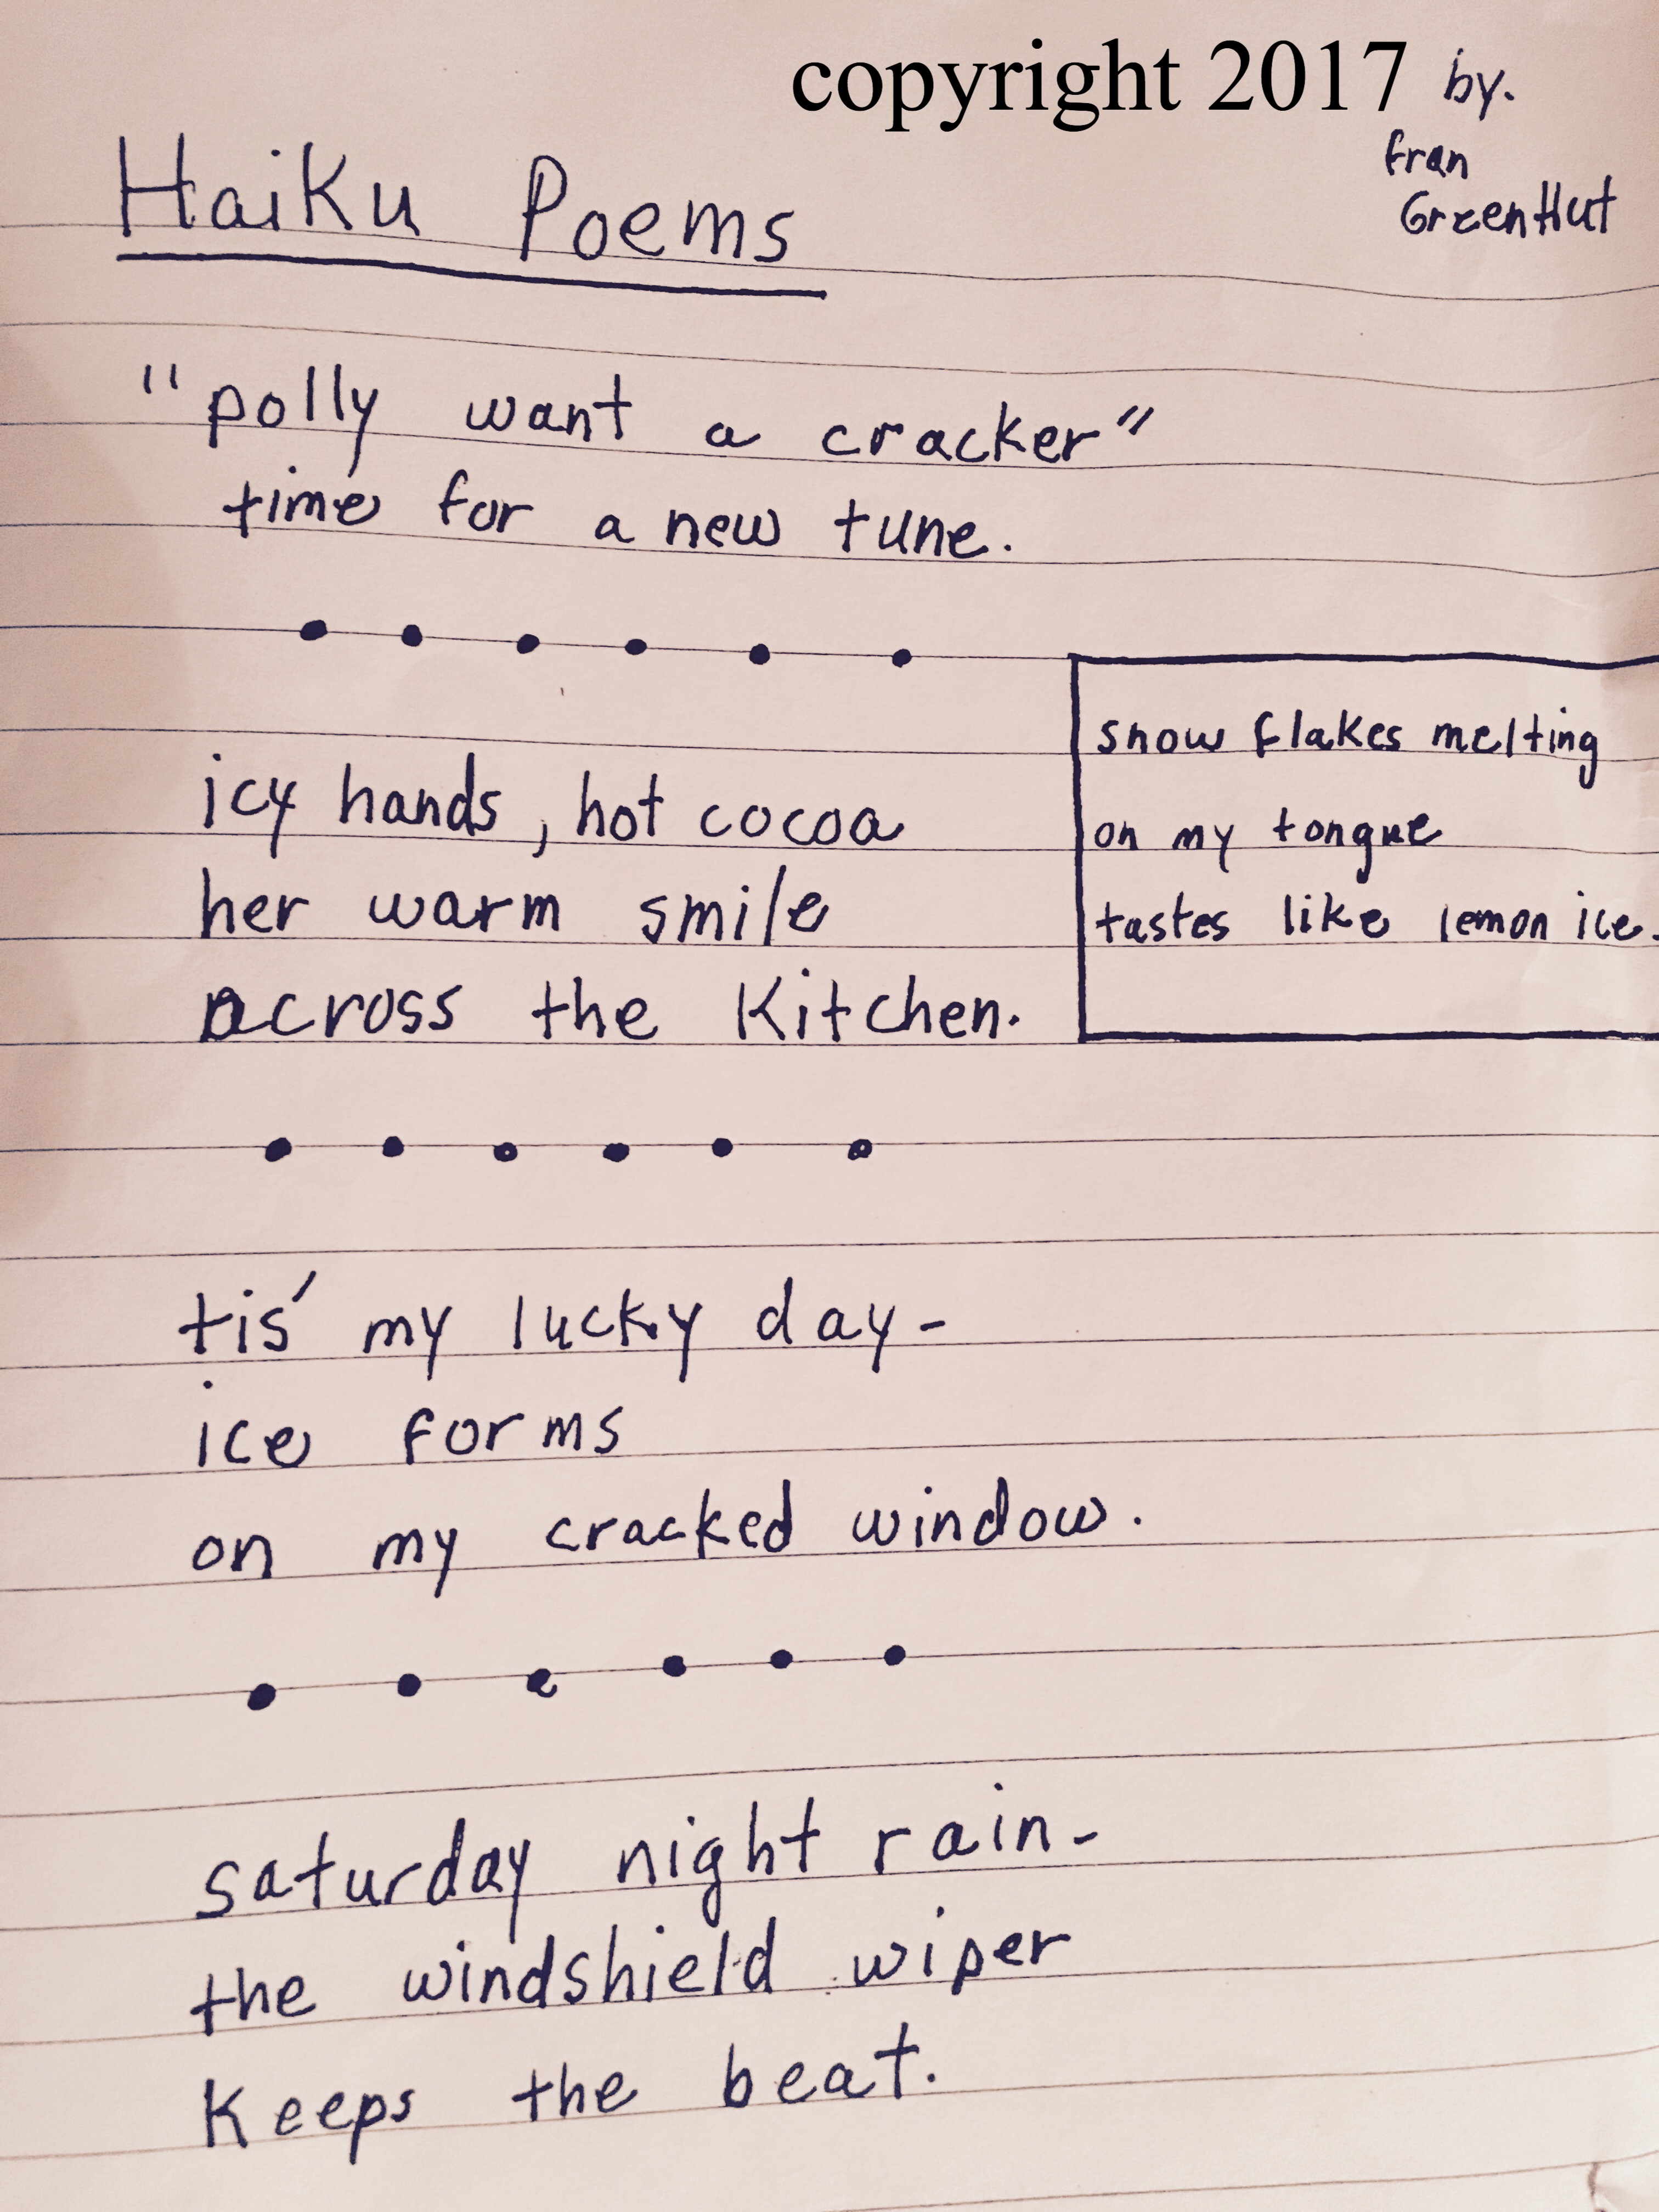 copyright 2017 by.
fran
GreenHut
Haiku Poems
"polly want a cracker"
time for a new tune.
icy hands, hot cocoa
her warm smile
across the Kitchen.
snow flakes melting
on my tongue
tastes like lemon ice.
tis' my lucky day-
ice forms
on my cracked window.
saturday night rain-
the windshield wiper
Keeps the beat.